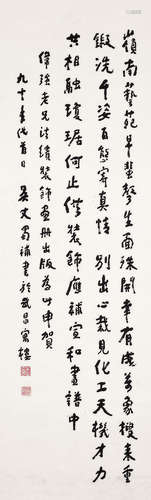 嶺南藝苑早蜚聲生面殊開幸有成萬象搜來重
鍛洗千姿百態寄真情別出心裁見化工天機才力
共相融瓊琚何止供裝飾應補宣和畫譜中
偉強老兄法繢裝飾畫册出版爲此申賀
九十年代首日吳丈蜀補書於武昌寓樓